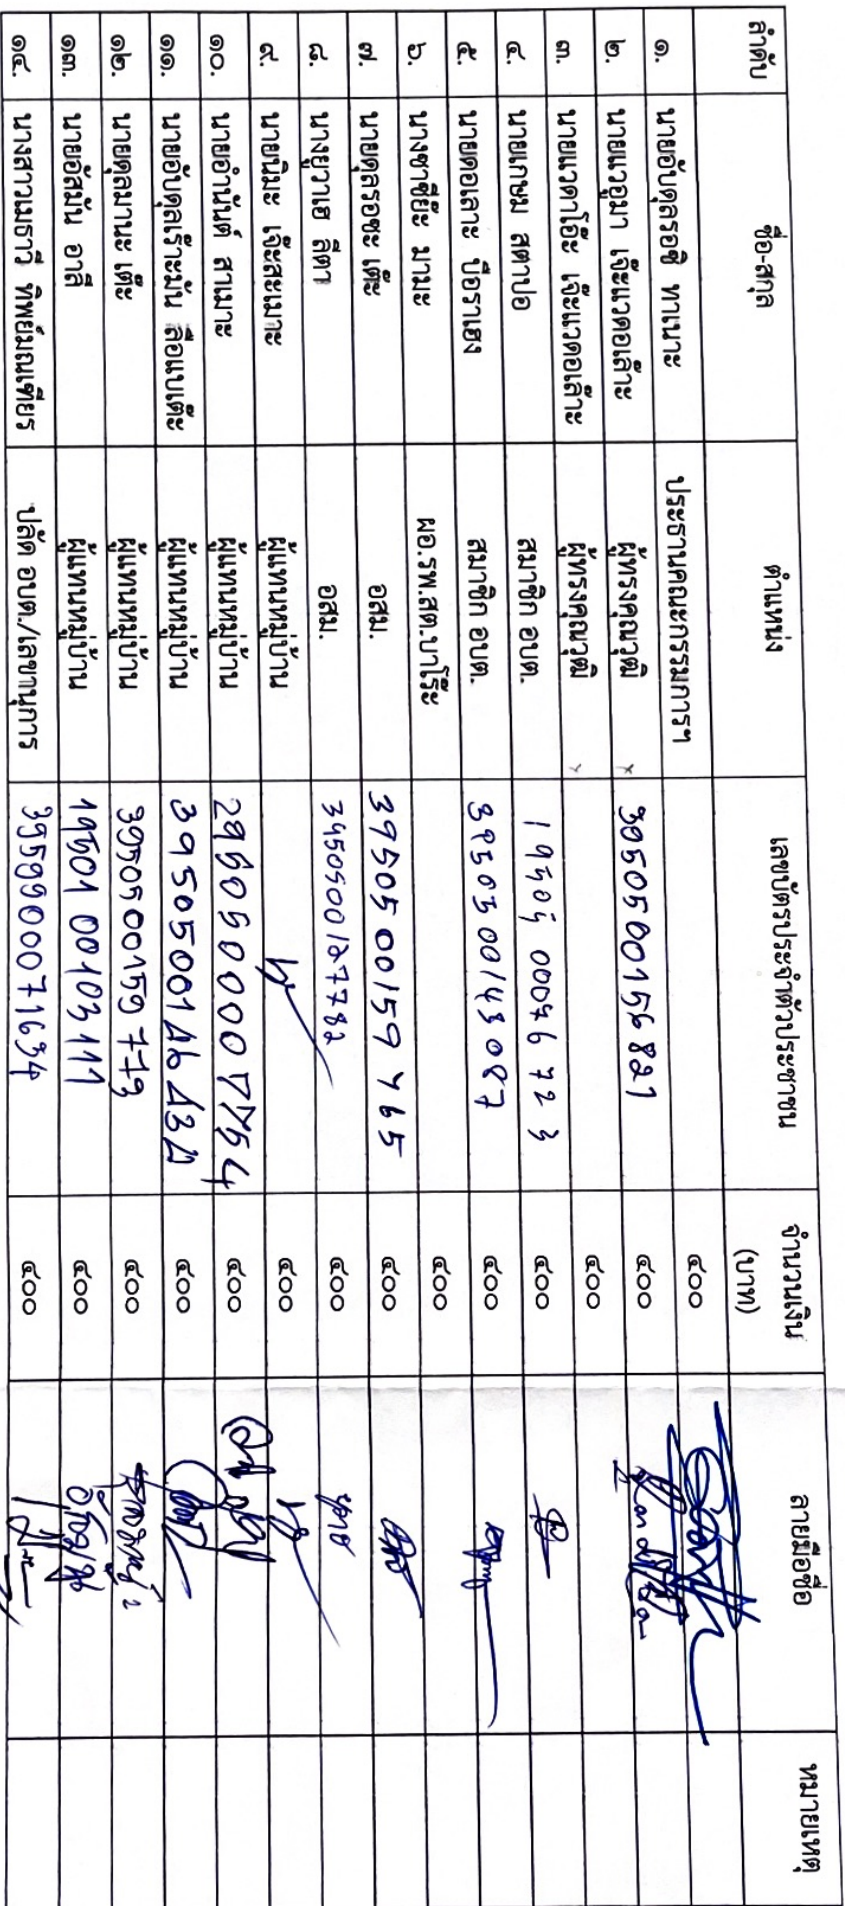 ลำดับ ชื่อ-สกุล ตำแหน่ง เลขบัตรประจำตัวประชาชน จำนวนเงิน (บาท) ลายมือชื่อ หมายเหตุ
๑. นายอับดุลรอซิ ทาเมาะ ประธานคณะกรรมการฯ ๔๐๐
๒. นายแวอูมา เจ๊ะแวดอเล๊าะ ผู้ทรงคุณวุฒิ 3950500156821 ๔๐๐
๓. นายแวดาโอ๊ะ เจ๊ะแวดอเล๊าะ ผู้ทรงคุณวุฒิ ๔๐๐
๔. นายเกษม สตาปอ สมาชิก อบต. ๔๐๐
๕. นายดอเลาะ บือราเฮง สมาชิก อบต. ๔๐๐
๖. นางซาซีย๊ะ มามะ ผอ.รพ.สต.บาโร๊ะ ๔๐๐
๗. นายดุลรอซะ เต๊ะ อสม. 3950500159765 ๔๐๐
๘. นางยูวาเฮ สีตา อสม. ๔๐๐
๙. นายนิมะ เจ๊ะสะเมาะ ผู้แทนหมู่บ้าน ๔๐๐
๑๐. นายอำนันต์ สามาะ ผู้แทนหมู่บ้าน ๔๐๐
๑๑. นายอับดุลเร๊าะมัน ลือแบเต๊ะ ผู้แทนหมู่บ้าน ๔๐๐
๑๒. นายดุลมานะ เต๊ะ ผู้แทนหมู่บ้าน 3950500159773 ๔๐๐
๑๓. นายอัสมัน อาลี ผู้แทนหมู่บ้าน 1950100103111 ๔๐๐
๑๔. นางสาวเมธาวี ทิพย์มณเฑียร ปลัด อบต./เลขานุการ 3959900071634 ๔๐๐